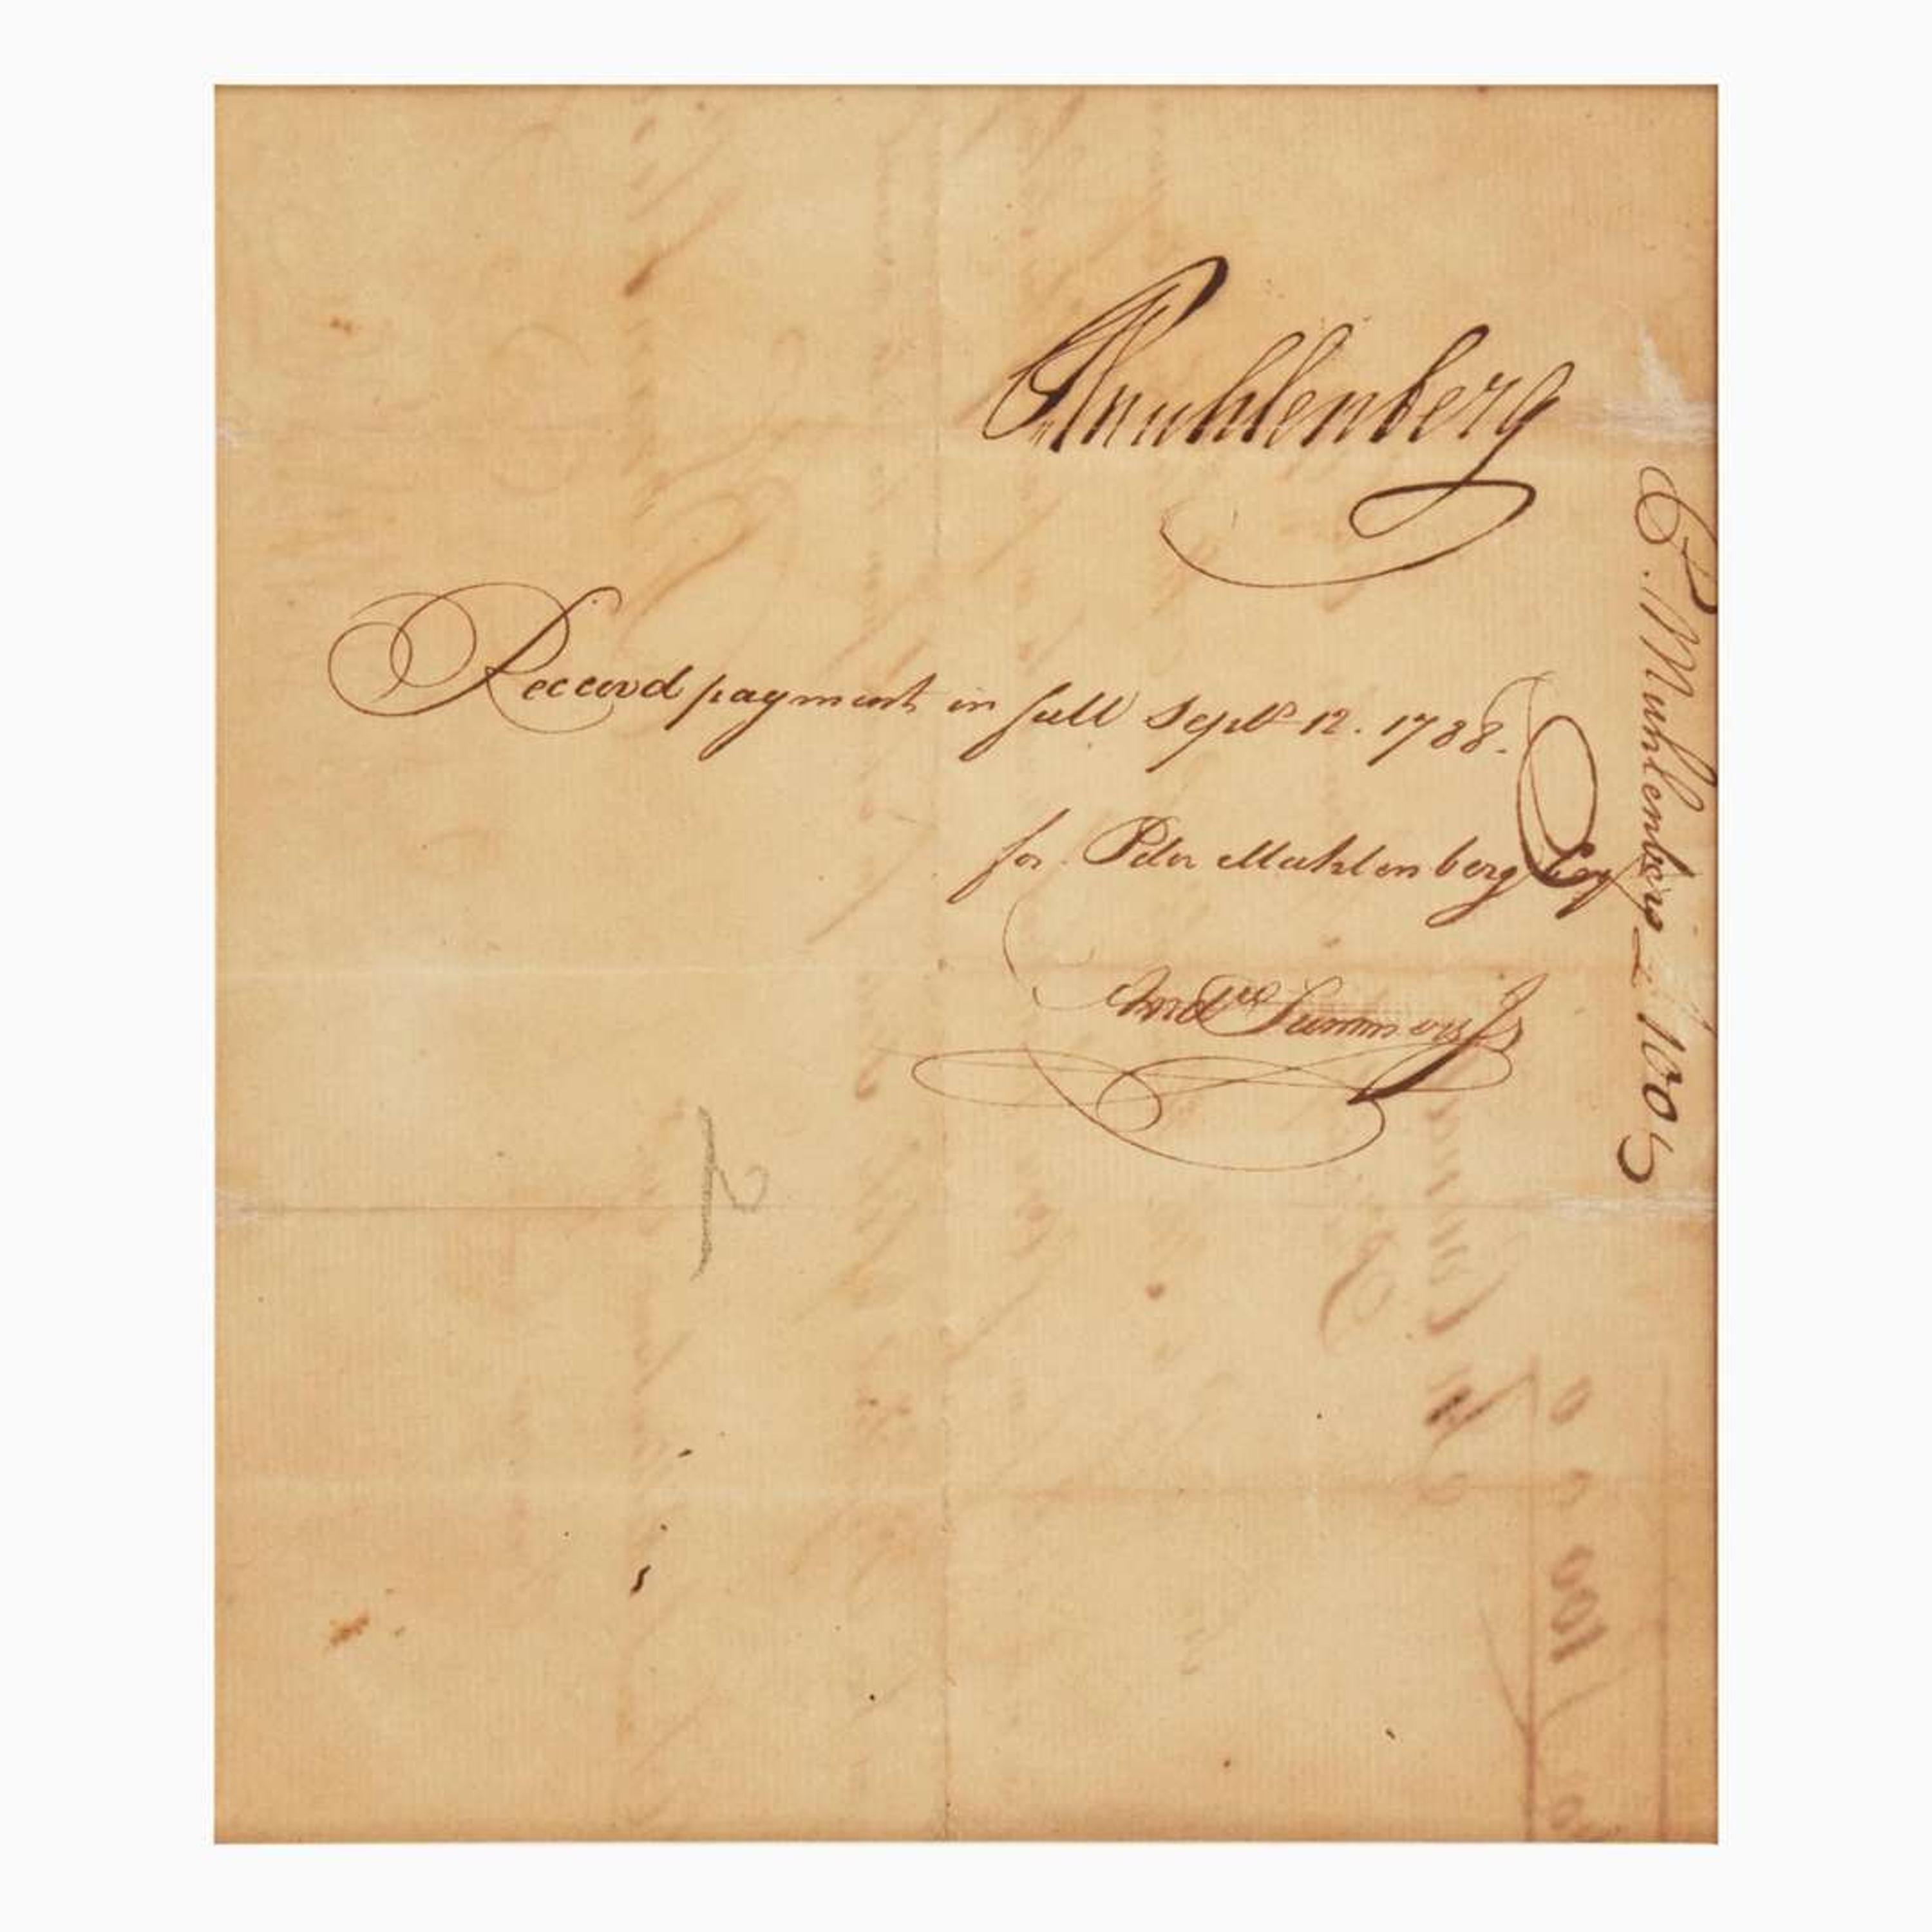 PMuhlenberg
Receivd payment in full Septr 12. 1788.
for Peter Muhlenberg Esqr
Andw Summers Jr
P. Muhlenberg £ 100